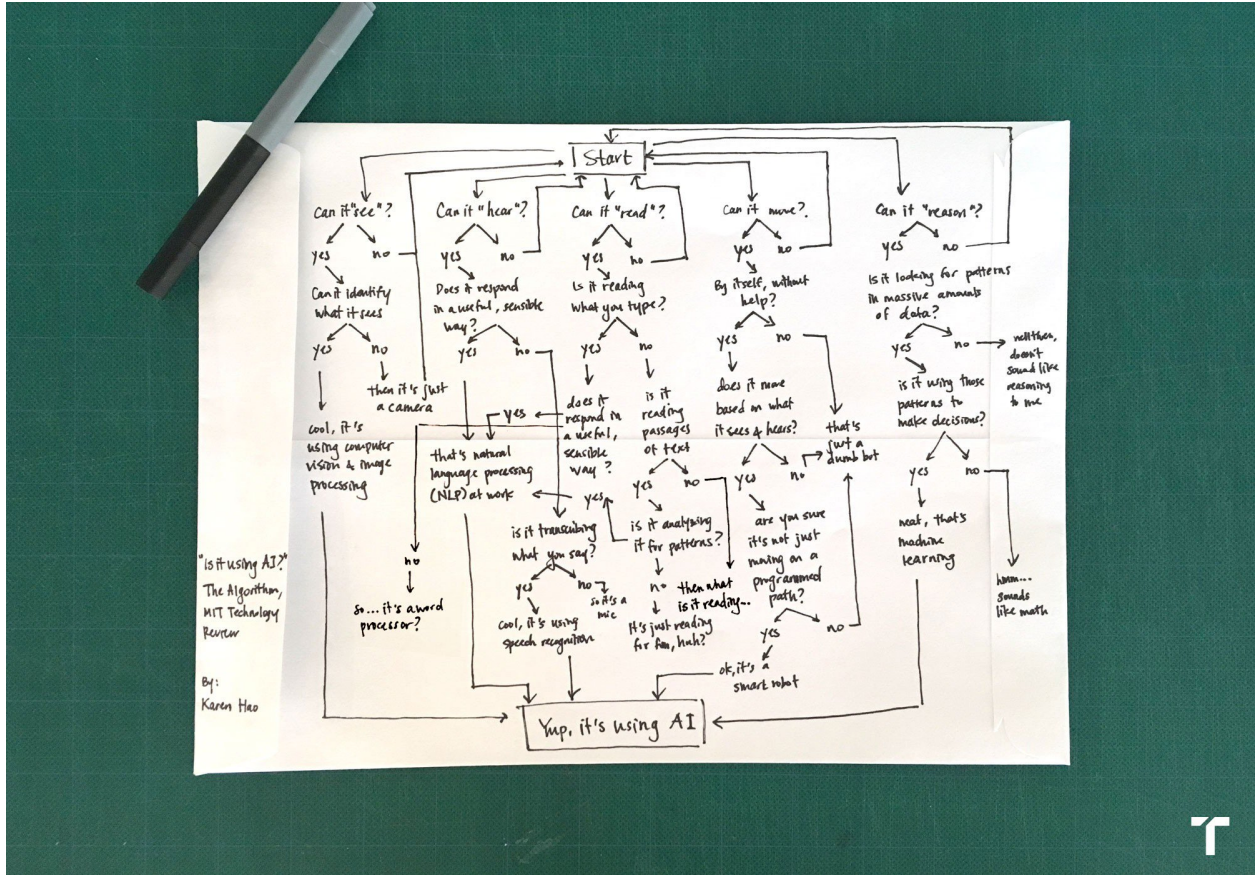 Start
Can it "see"?
yes
no
Can it identify
what it sees
yes
no
then it's just
a camera
cool, it's
using computer
vision & image
processing
Can it "hear"?
yes
no
Does it respond
in a useful, sensible
way?
yes
no
that's natural
language processing
(NLP) at work
is it transcribing
what you say?
yes
no
so it's a
mic
cool, it's using
speech recognition
Can it "read"?
yes
no
Is it reading
what you type?
yes
no
does it
respond in
a useful,
sensible
way?
yes
no
so... it's a word
processor?
is it
reading
passages
of text
yes
no
then what
is it reading...
is it analyzing
it for patterns?
yes
no
It's just reading
for fun, huh?
Can it move?
yes
no
By itself, without
help?
yes
no
does it move
based on what
it sees & hears?
yes
no
that's
just a
dumb bot
are you sure
it's not just
moving on a
programmed
path?
yes
no
ok, it's a
smart robot
Can it "reason"?
yes
no
Is it looking for patterns
in massive amounts
of data?
yes
no
doesn't
sound like
reasoning
to me
is it using those
patterns to
make decisions?
yes
no
neat, that's
machine
learning
hmm...
sounds
like math
Yup, it's using AI
"Is it using AI?"
The Algorithm,
MIT Technology
Review
By:
Karen Hao
T